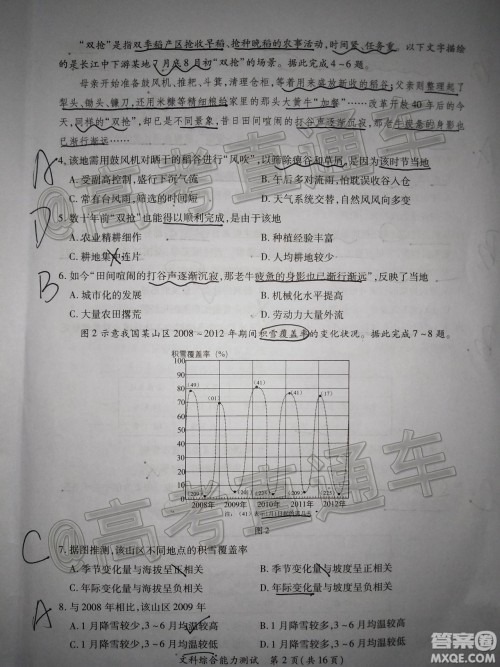 "双抢"是指双季稻产区抢收早稻、抢种晚稻的农事活动,时间紧、任务重。以下文字描绘
的是长江中下游某地7月底8月初"双抢"的场景。据此完成4~6题。
母亲开始准备鼓风机、推耙、斗箕,清理仓柜,等着用来盛放新收的稻谷;父亲则整理起了
犁头、锄头、镰刀,还用米糠等精细粮给家里的那头大黄牛"加餐"……改革开放40年后的今
天,同样的"双抢",却已是不同景象,昔日田间喧闹的打谷声逐渐沉寂,那老牛疲惫的身影也
已渐行渐远……
A
4.该地需用鼓风机对晒干的稻谷进行"风吹",以筛除瘪谷和草屑,是因为该时节当地
A.受副高控制,盛行下沉气流
B.午后多对流雨,怕耽误收谷入仓
C.常有台风雨,筛选的时间短
D.天气系统交替,自然风风向多变
D
5.数十年前"双抢"也能得以顺利完成,是由于该地
A.农业精耕细作
B.种植经验丰富
C.耕地集中连片
D.人均耕地较少
B
6.如今"田间喧闹的打谷声逐渐沉寂,那老牛疲惫的身影也已渐行渐远",反映了当地
A.城市化的发展
B.机械化水平提高
C.大量农田撂荒
D.劳动力大量外流
图2示意我国某山区2008~2012年期间积雪覆盖率的变化状况。据此完成7~8题。
积雪覆盖率(%)
100
90
80
70
60
50
40
30
20
10
0
(49)
(41)
(41)
2008年
2009年
2010年
2011年
2012年
图2
C
7.据图推测,该山区不同地点的积雪覆盖率
A.季节变化量与海拔呈正相关
B.季节变化量与坡度呈正相关
C.年际变化量与海拔呈负相关
D.年际变化量与坡度呈负相关
A
8.与2008年相比,该山区2009年
A.1月降雪较少,3~6月均温较高
B.1月降雪较多,3~6月均温较高
C.1月降雪较少,3~6月均温较低
文科综合能力测试 第2页(共16页)
@高考直通车
@高考直通车
答案圈
MXQE.COM